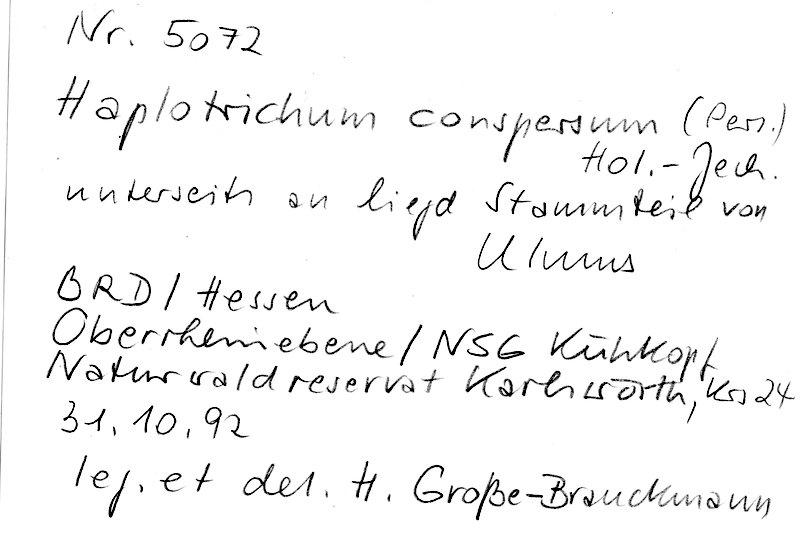 Nr. 5072
Haplotrichum conspersum (Pers.)
Hol.-Jech.
unterseits an liegd Stammteil von
Ulmus
BRD / Hessen
Oberrheinebene / NSG Kühkopf
Naturwaldreservat Karlswörth, Krs 24
31.10.92
leg. et det. H. Große-Brauckmann